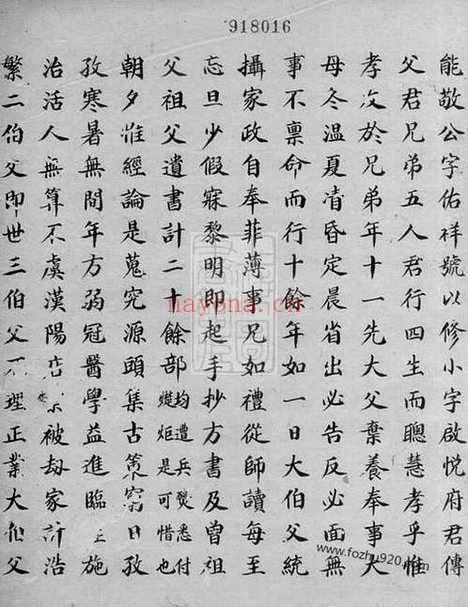 918016
能敬公字佑祥號以修小字啟悅府君傳
父君兄弟五人君行四生而聰慧孝乎惟
孝友於兄弟年十一先大父棄養奉事大
母冬溫夏凊昏定晨省出必告反必面無
事不禀命而行十餘年如一日大伯父統
攝家政自奉菲薄事兄如禮從師讀每至
忘旦少假寐黎明即起手抄方書及曾祖
父祖父遺書計二十餘部均遭兵燹悉付炬是可惜也
朝夕惟經論是蒐究源頭集古窮日孜
孜寒暑無問年方弱冠醫學益進臨施
治活人無算不虞漢陽店被劫家計浩
繁二伯父即世三伯父理正業大伯父
nayona.cn
www.fozhu920.com